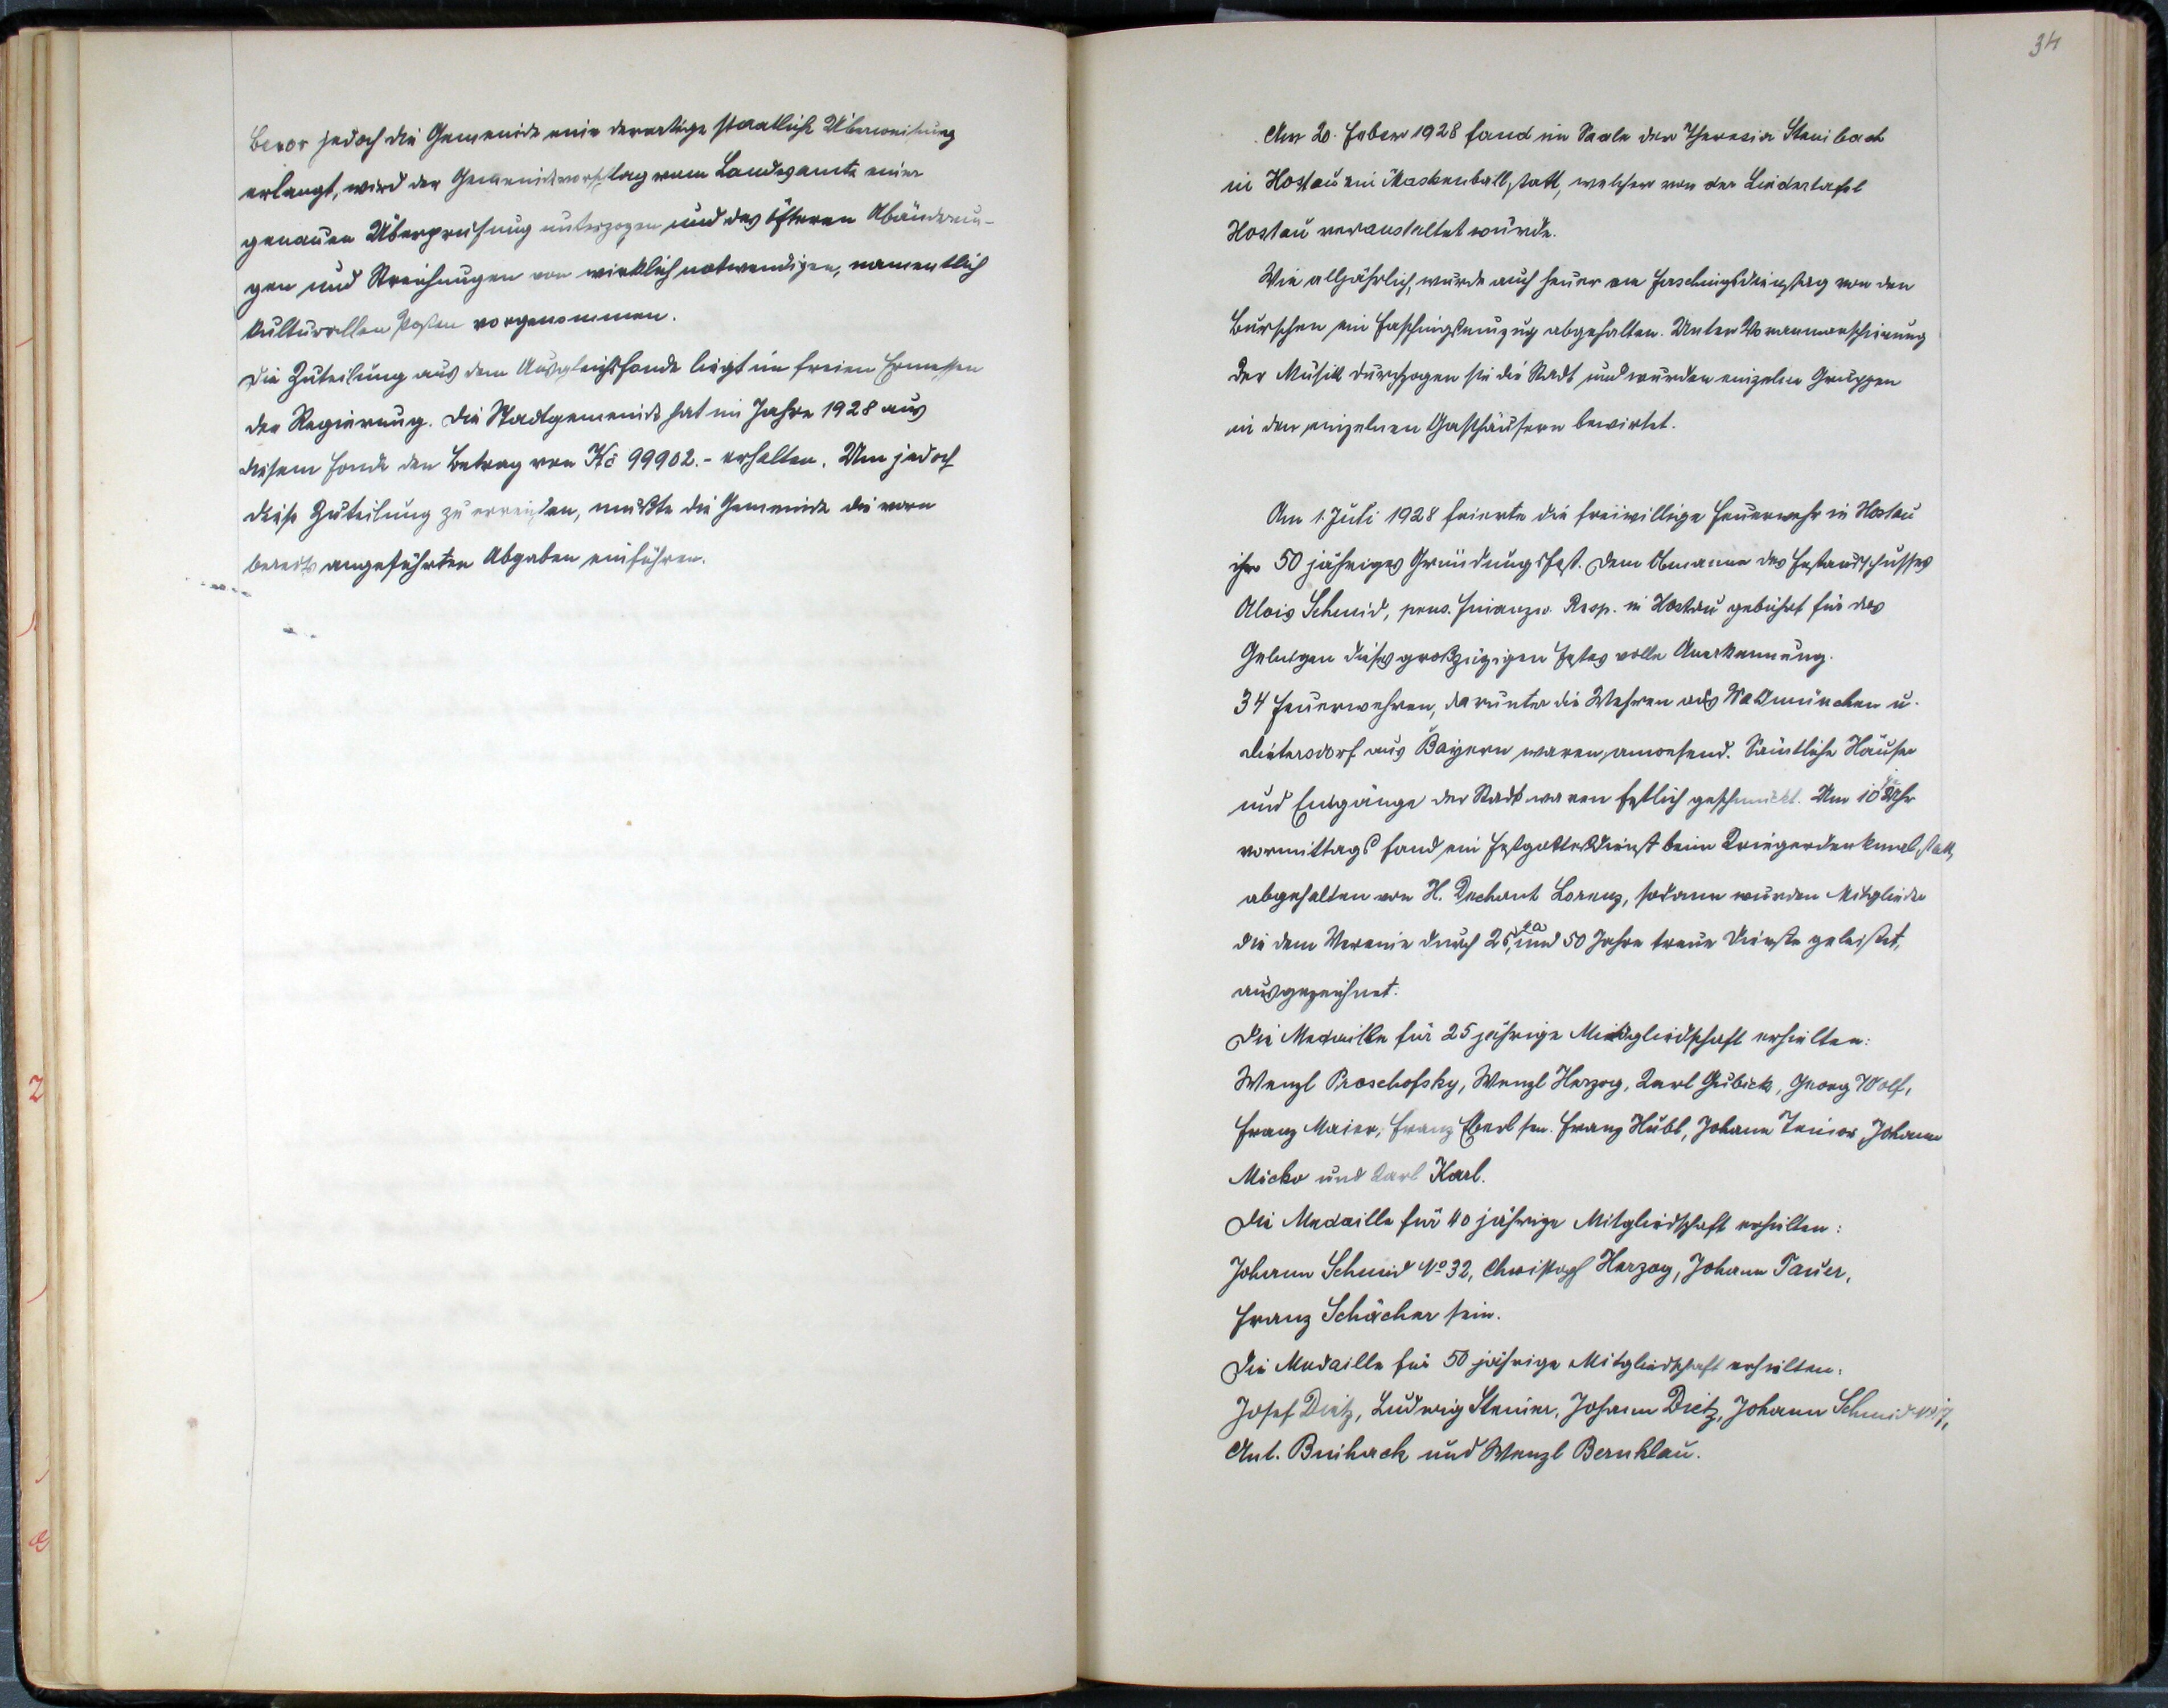 Bevor jedoch die Gemeinde eine derartige staatliche Überweisung
erlangt, wird der Gemeindevorschlag vom Landesamte einer
genauen Überprüfung unterzogen und des öfteren Abänderun-
gen und Streichungen von wirklich notwendigen, namentlich
kulturellen Posten vorgenommen.
Die Zuteilung aus dem Ausgleichsfonde liegt im freien Ermessen
der Regierung. Die Stadtgemeinde hat im Jahre 1928 aus
diesem Fonde den Betrag von Kč 99902.- erhalten. Um jedoch
diese Zuteilung zu erreichen, mußte die Gemeinde die vorn
bereits angeführten Abgaben einführen.
34
Am 20. Feber 1928 fand im Saale der Theresia Steinbach
in Hostau ein Maskenball statt, welcher von der Liedertafel
Hostau veranstaltet wurde.
Wie alljährlich, wurde auch heuer am Faschingsdienstag von den
Burschen ein Faschingsumzug abgehalten. Unter Voranmarschierung
der Musik durchzogen sie die Stadt und wurden einzelne Gruppen
in den einzelnen Gasthäusern bewirtet.
Am 1. Juli 1928 feierte die freiwillige Feuerwehr in Hostau
ihr 50 jähriges Gründungsfest. Dem Obmanne des Festausschusses
Alois Schmid, pens. Finanzw. Resp. in Hostau gebührt für das
Gelingen dieses großzügigen Festes volle Anerkennung.
34 Feuerwehren, darunter die Wehren aus Waldmünchen u.
Dietersdorf aus Bayern waren anwesend. Sämtliche Häuser
und Eingänge der Stadt waren festlich geschmückt. Um 10 Uhr
vormittags fand ein Festgottesdienst beim Kriegerdenkmal statt,
abgehalten von H. Dechant Lorenz, sodann wurden Mitglieder
die dem Vereine durch 25, 40 und 50 Jahre treue Dienste geleistet,
ausgezeichnet.
Die Medaille für 25 jährige Mitgliedschaft erhielten:
Wenzl Proschofsky, Wenzl Herzog, Karl Gubick, Georg Wolf,
Franz Maier, Franz Eberl sen. Franz Hübl, Johann Johann
Micko und Karl Karl.
Die Medaille für 40 jährige Mitgliedschaft erhielten:
Johann Schmid No 32, Christoph Herzog, Johann Tauer,
Franz Schächer sein.
Die Medaille für 50 jährige Mitgliedschaft erhielten:
Josef Dietz, Ludwig Steiner, Johann Dietz, Johann Schmid
Ant. und Wenzl Bernklau.